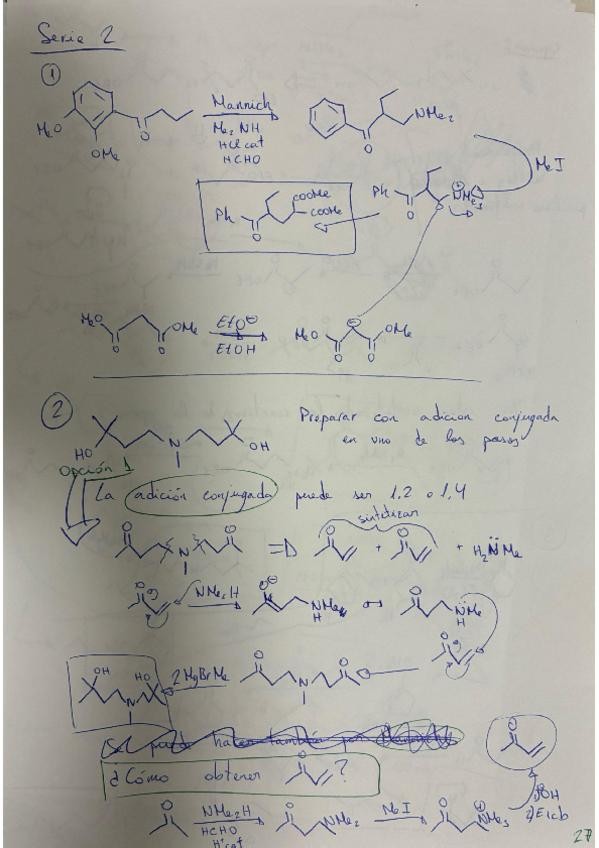 Serie 2
①
MeO
OMe
O
Mannich
Me2NH
HCl cat
HCHO
O
NMe2
MeI
Ph
O
COOMe
COOMe
Ph
O
⊕
NMe3
MeO
O
O
OMe
EtO⊖
EtOH
MeO
O
⊖
O
OMe
②
HO
N
OH
Preparar con adicion conjugada
en uno de los pasos
Opción 1
La adición conjugada puede ser 1,2 o 1,4
sintetizar
O
N
O
O
+
O
+ H2NMe
O
NMe2H
O⊖
NMe
H
↔
O
NMe
H
OH
HO
N
2 MgBrMe
O
N
O
O
¿Cómo obtener
O
?
O
O
NMe2H
HCHO
H+cat
O
NMe2
MeI
O
⊕
NMe3
1) OH
2) E1cb
27